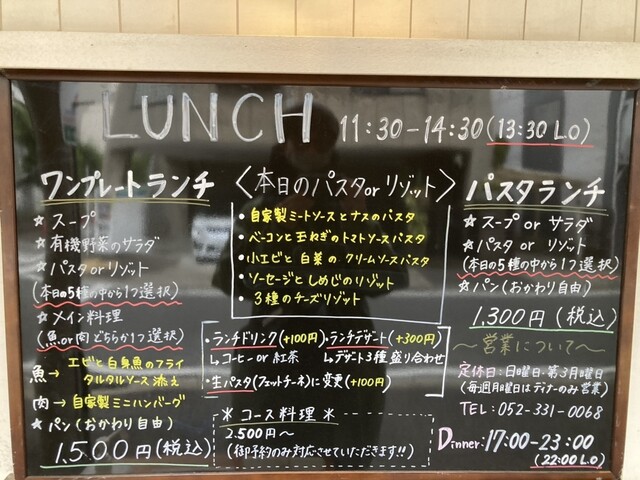 LUNCH 11:30-14:30(13:30 L.O)
ワンプレートランチ
☆スープ
☆有機野菜のサラダ
☆パスタ or リゾット
(本日の5種の中から1つ選択)
☆メイン料理
(魚 or 肉どちらか1つ選択)
魚→エビと白身魚のフライ
タルタルソース添え
肉→自家製ミニハンバーグ
☆パン(おかわり自由)
1.500円(税込)
〈本日のパスタ or リゾット〉
・自家製ミートソースとナスのパスタ
・ベーコンと玉ねぎのトマトソースパスタ
・小エビと白菜のクリームソースパスタ
・ソーセージとしめじのリゾット
・3種のチーズリゾット
・ランチドリンク(+100円)・ランチデザート(+300円)
↳コーヒー or 紅茶 ↳デザート3種盛り合わせ
・生パスタ(フェットチーネ)に変更(+100円)
※コース料理※
2.500円〜
(御予約のみ対応させていただきます!!)
パスタランチ
☆スープ or サラダ
☆パスタ or リゾット
(本日の5種の中から1つ選択)
☆パン(おかわり自由)
1.300円(税込)
〜営業について〜
定休日:日曜日・第3月曜日
(毎週月曜日はディナーのみ営業)
TEL:052-331-0068
Dinner:17:00-23:00
(22:00 L.O)